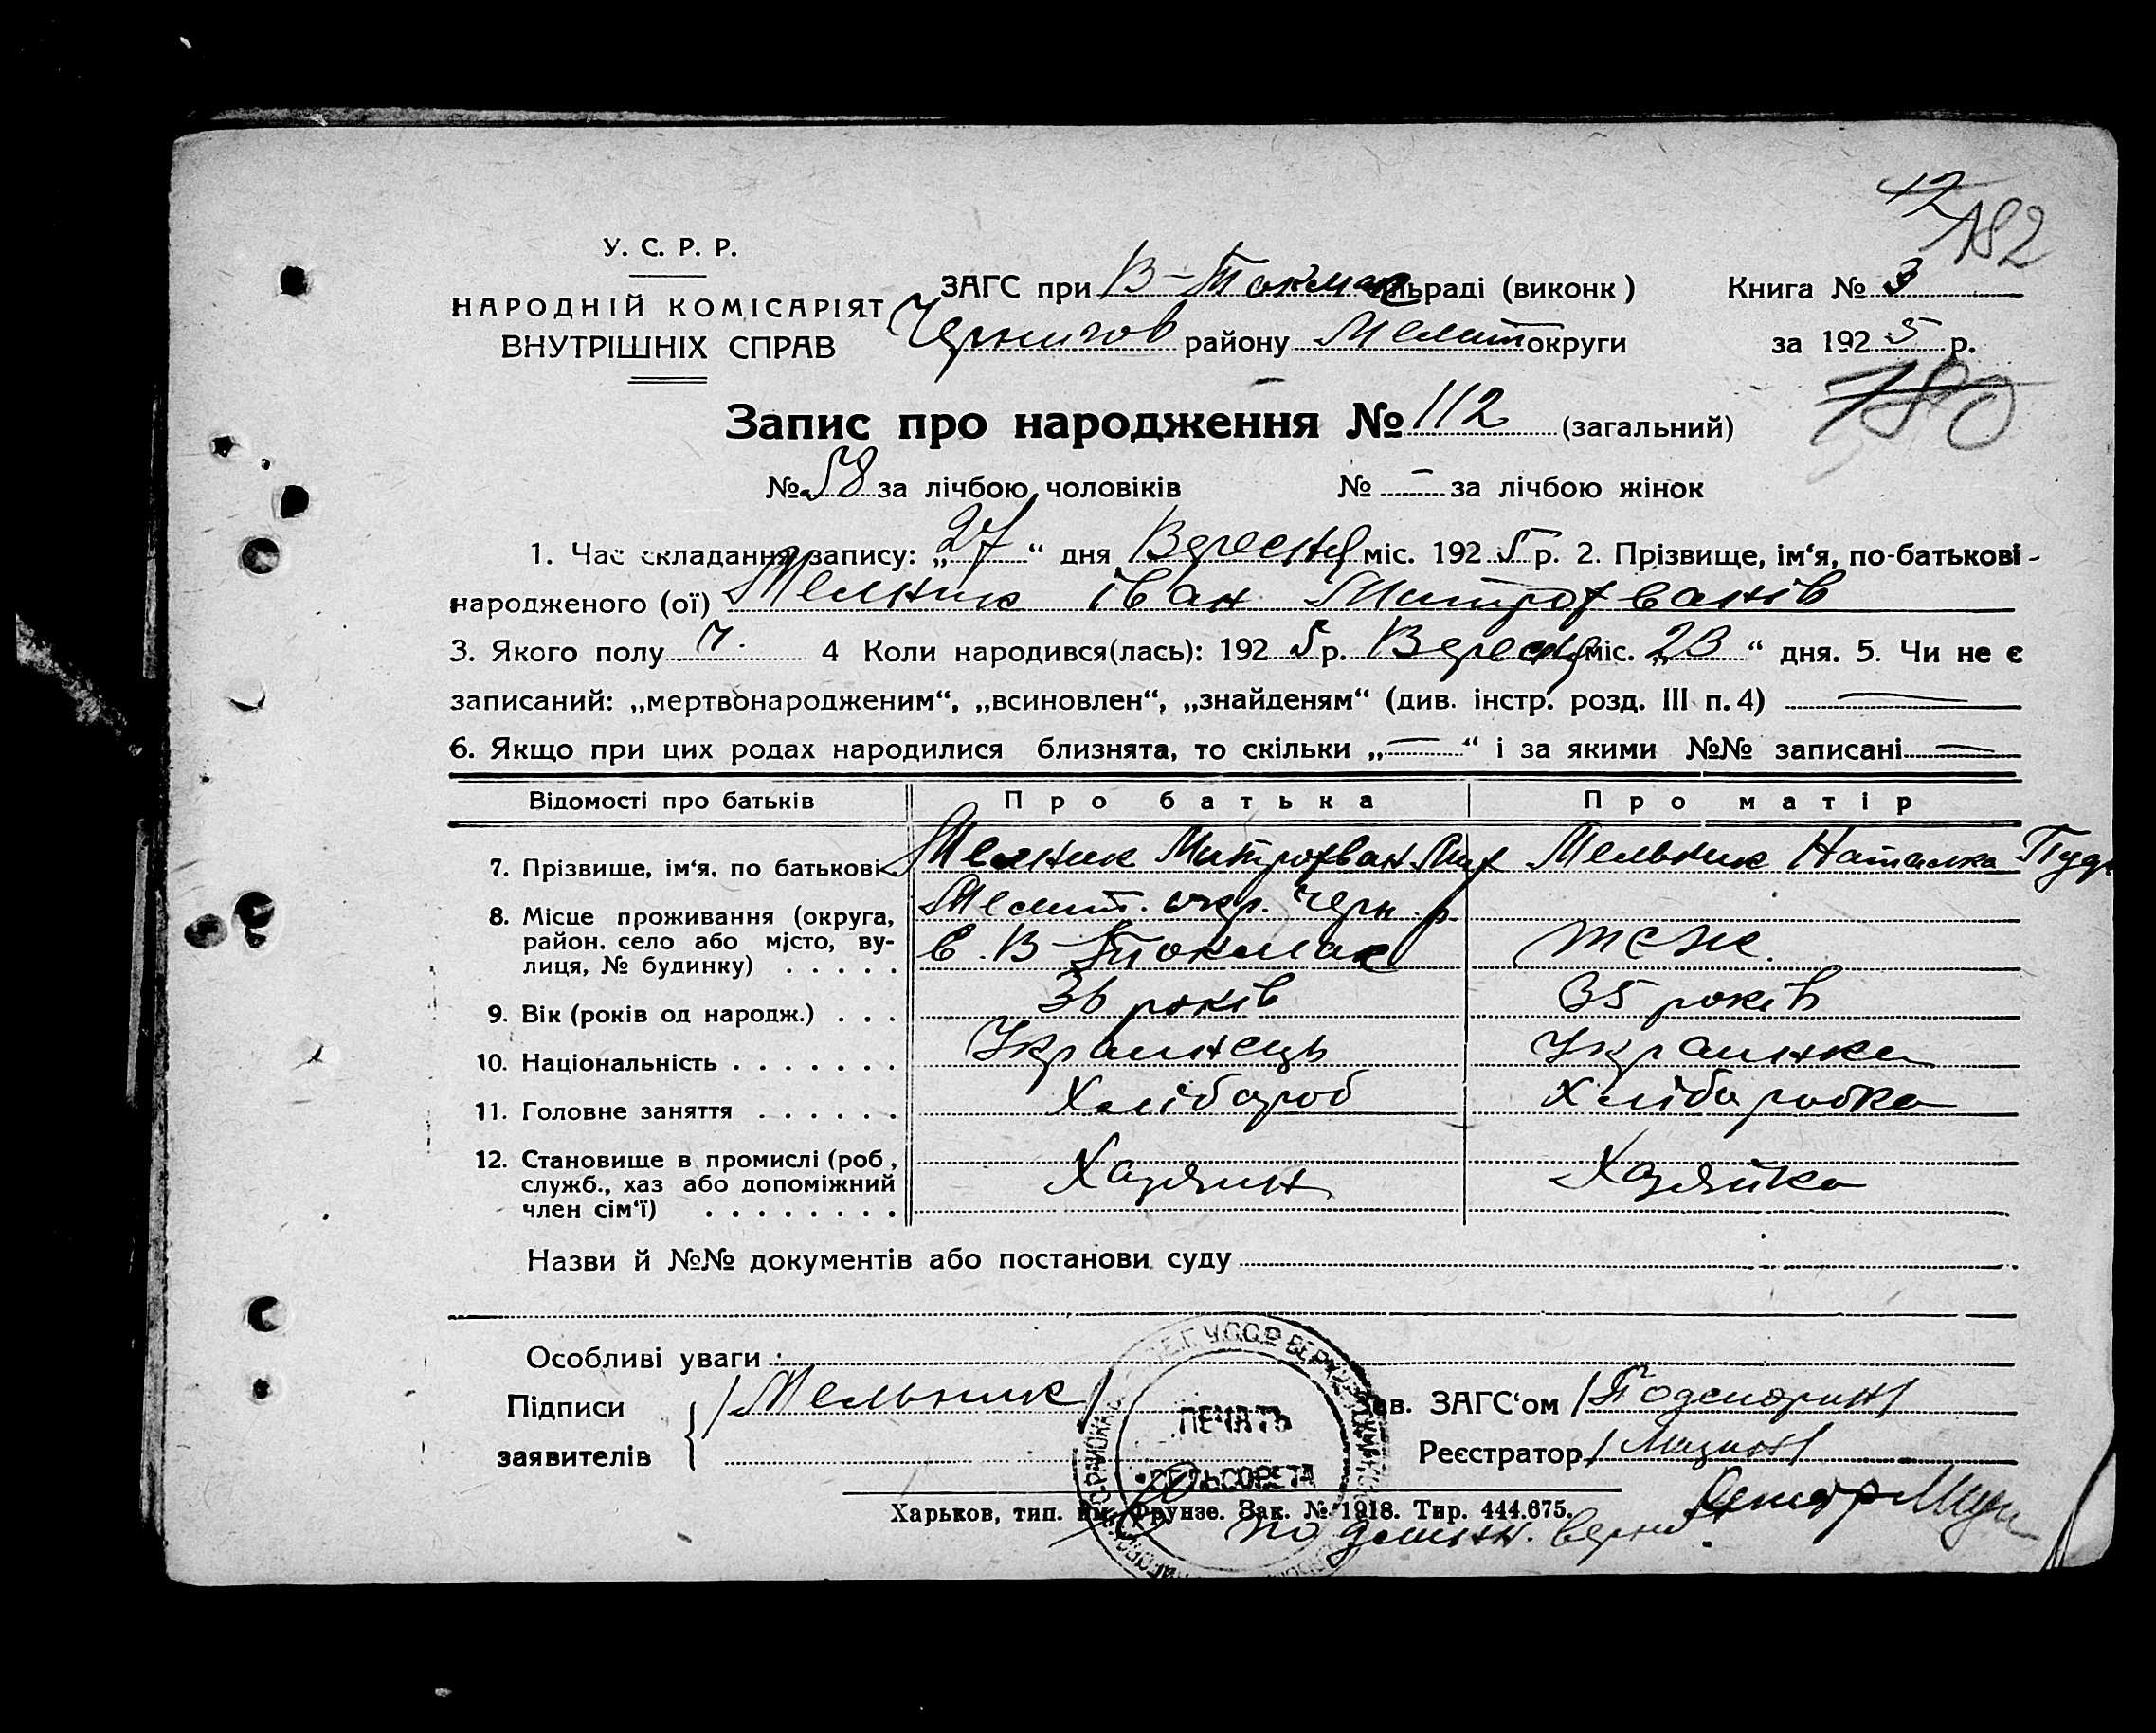 42
182
У. С. Р. Р.
НАРОДНІЙ КОМІСАРІЯТ
ВНУТРІШНІХ СПРАВ
ЗАГС при В-Токмак сільраді (виконк) Книга № 3
Чернигов району Мелит округи за 1925 р.
180
Запис про народження № 112 (загальний)
№ 58 за лічбою чоловіків № – за лічбою жінок
1. Час складання запису: „27“ дня Вересня міс. 1925 р. 2. Прізвище, ім'я, по-батькові
народженого (ої) Мелник Іван Митрофванів
3. Якого полу ч. 4 Коли народився(лась): 1925 р. Вересня міс. „23“ дня. 5. Чи не є
записаний: „мертвонародженим“, „всиновлен“, „знайденям“ (див. інстр. розд. III п. 4) —
6. Якщо при цих родах народилися близнята, то скільки „—“ і за якими №№ записані —
Відомості про батьків Про батька Про матір
7. Прізвище, ім'я, по батькові Мелник Митрофван Мельник Наталка
8. Місце проживання (округа, Мелит. окр. Черн. р
район, село або місто, ву- с. В-Токмак теж.
лиця, № будинку) . . . . .
9. Вік (років од народж.) . . . 36 років 35 років
10. Національність . . . . . . . Украинець Украинка
11. Головне заняття . . . . . . Хлібароб Хлібаробка
12. Становище в промислі (роб,
служб., хаз або допоміжний Хазяин Хазяйка
член сім'ї) . . . . . . . .
Назви й №№ документів або постанови суду
Особливі уваги :
Підписи /Мельник/ Зав. ЗАГС'ом
заявителів Реєстратор
ПЕЧАТЬ
СЕЛЬСОВЕТА
Харьков, тип. им. Фрунзе. Зак. № 1918. Тир. 444.675.
верно